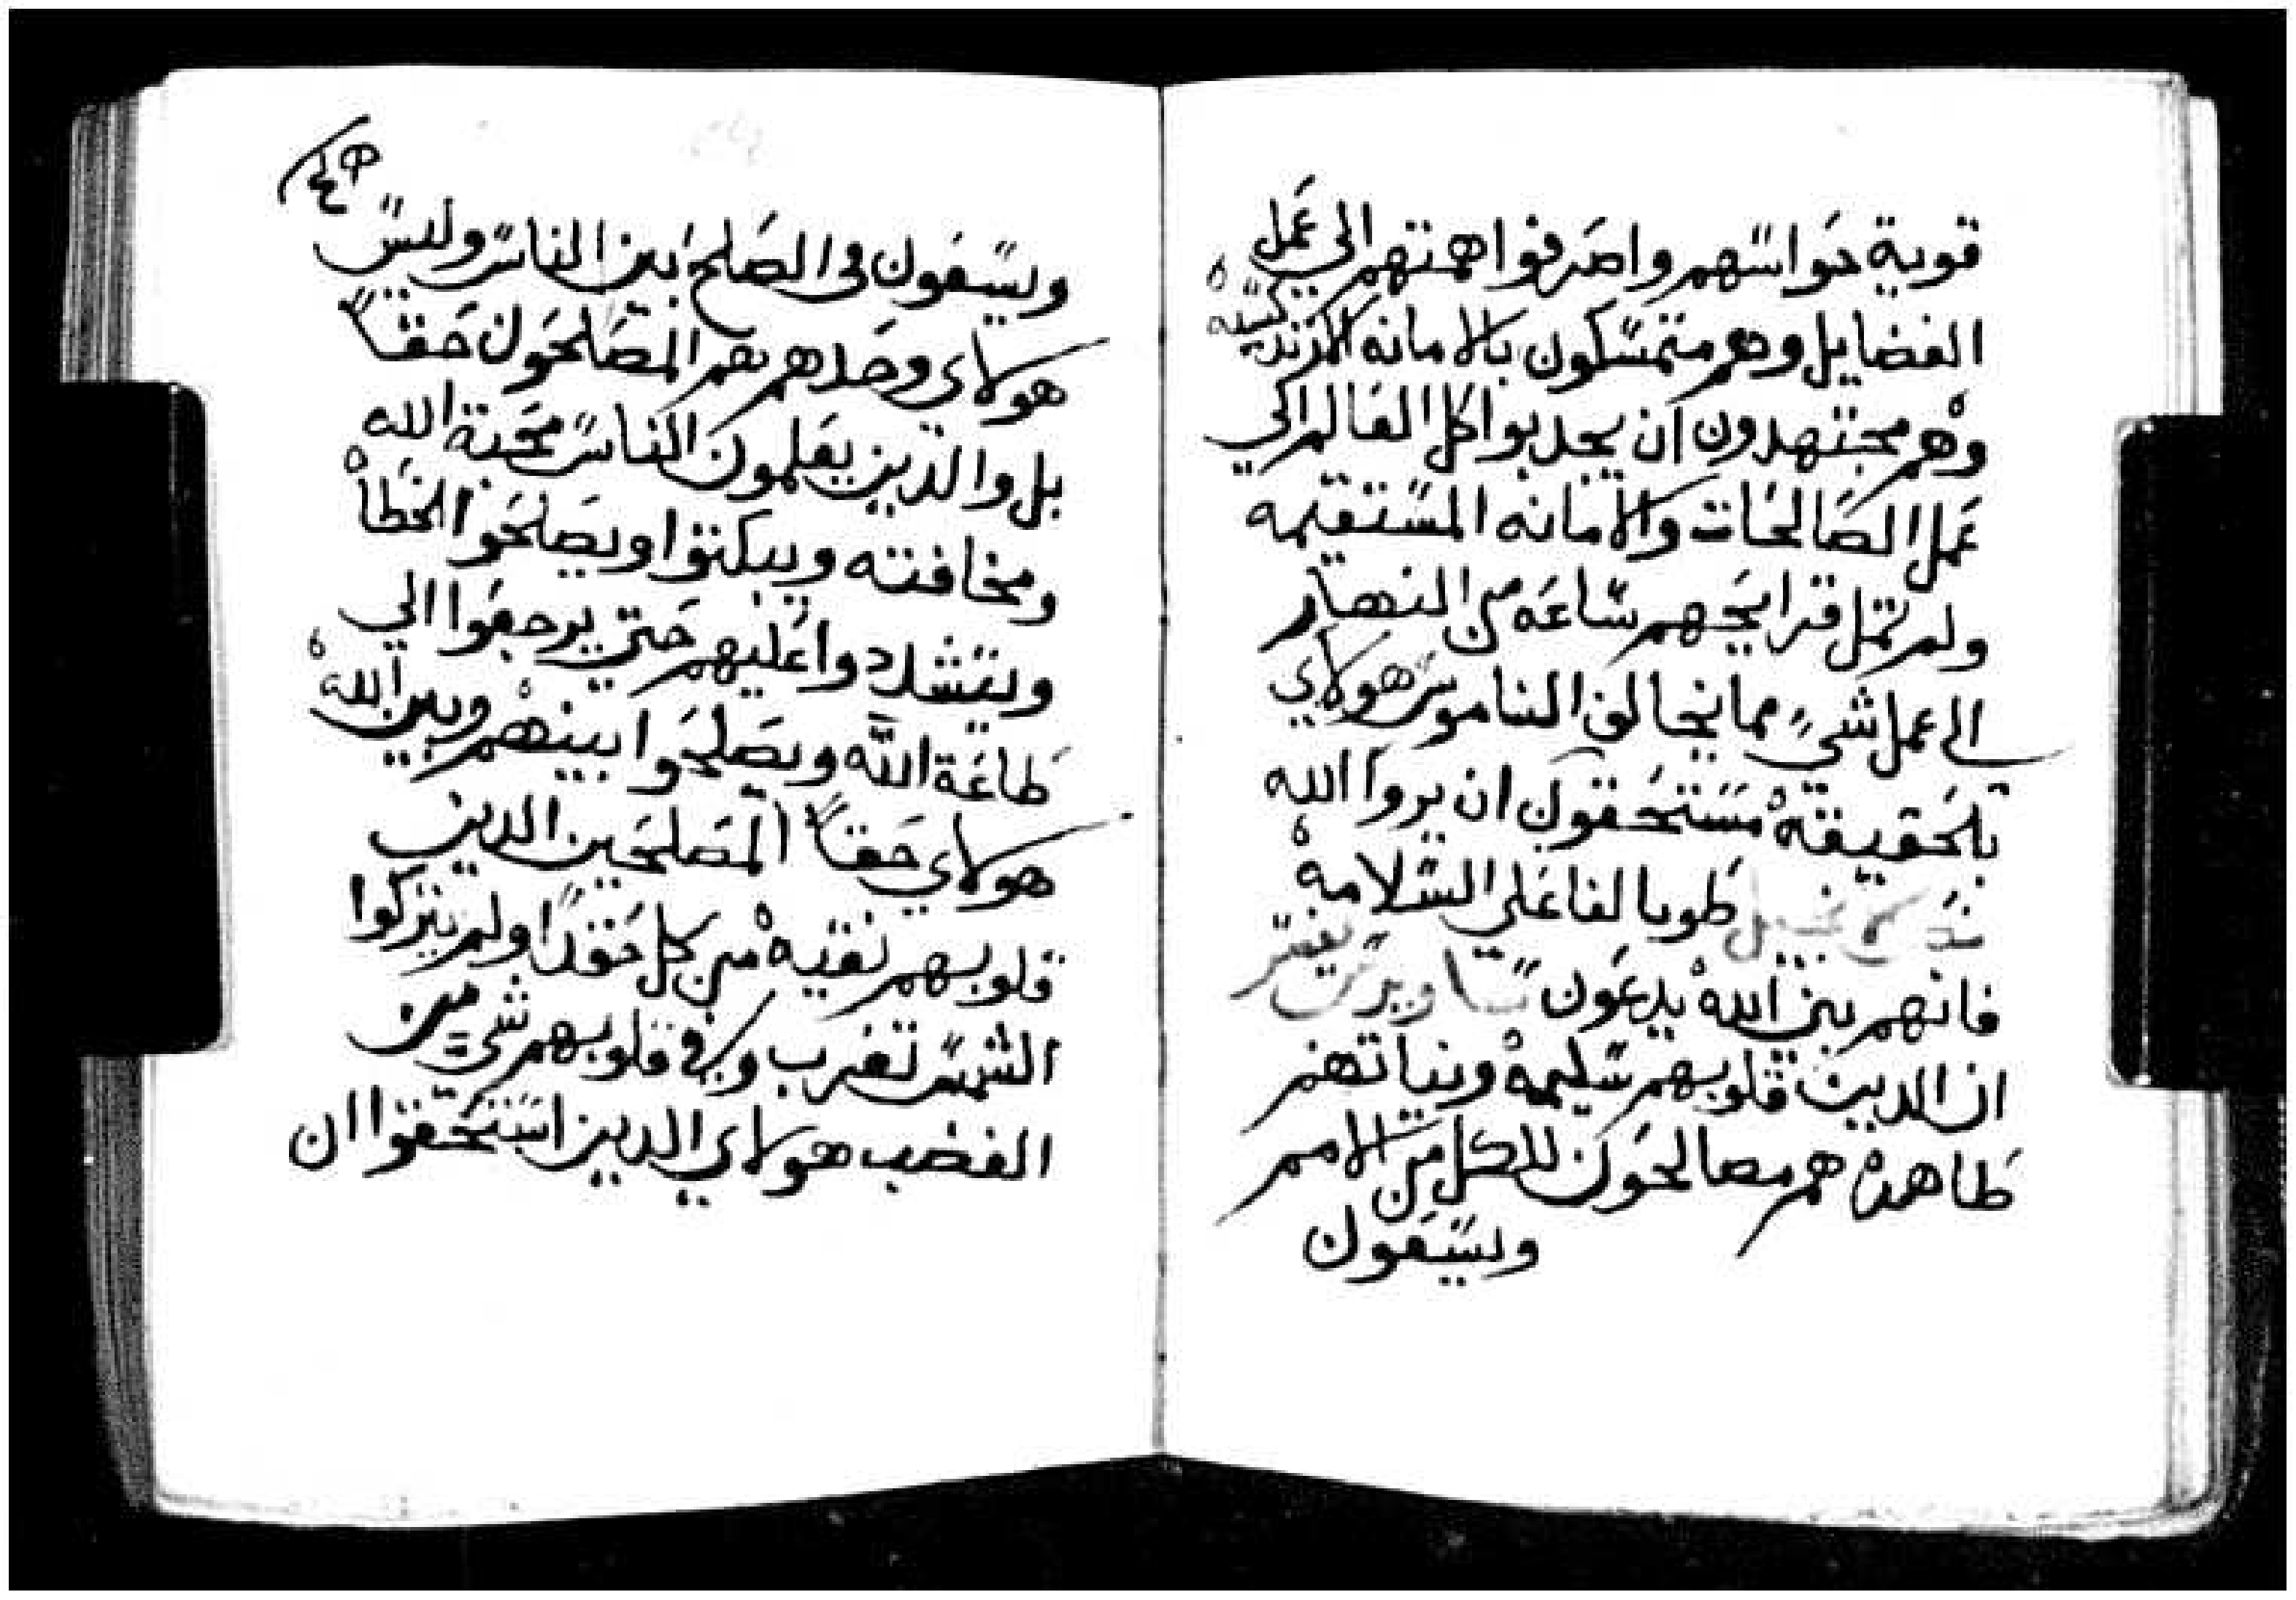 قوية حواسهم واصرفوا همتهم الي عمل
الفضايل وهم متمسكون بالامانه الارتدكسيه
وهم مجتهدون ان يجدبوا كل العالم الي
عمل الصالحات والامانه المستقيمه
ولم تمل قرايحهم ساعه من النهار
الي عمل شيء مما يخالف الناموس هولاي
بلحقيقه مستحقون ان يروا الله
طوبا لفاعلي السلامه
فانهم بني الله يدعون تفسير
ان الدين قلوبهم سليمه ونياتهم
طاهره هم مصالحون للكل من الامم
ويسعون
ويسعون في الصلح بين الناس وليس
هولاي وحدهم هم المصلحون حقاً
بل والدين يعلمون الناس محبة الله
ومخافته ويبكتوا ويصلحوا الخطاه
ويتشددوا عليهم حتي يرجعوا الي
طاعة الله ويصلحوا بينهم وبين الله
هولاي حقاً المصلحين الدين
قلوبهم نقيه من كل حقداً ولم يتركوا
الشمس تغرب وفي قلوبهم شي من
الغضب هولاي الدين استحقوا ان